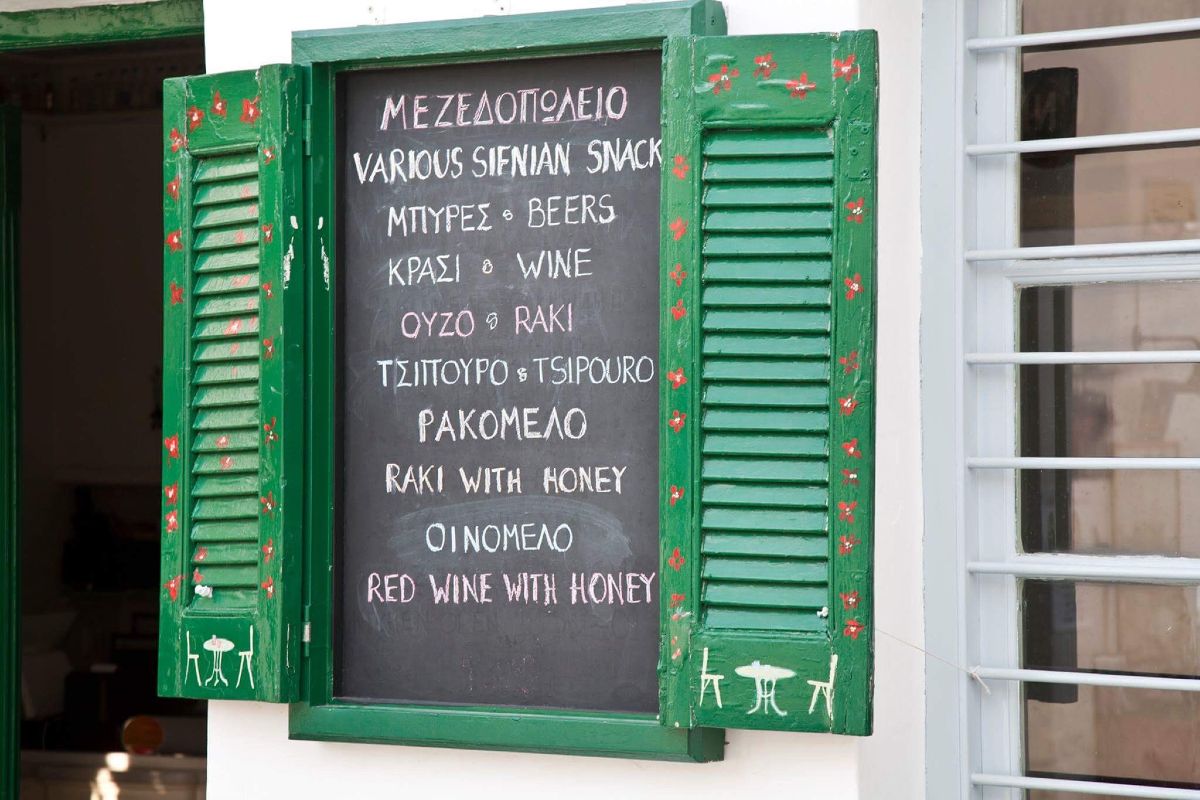 ΜΕΖΕΔΟΠΩΛΕΙΟ
VARIOUS SIFNIAN SNACK
ΜΠΥΡΕΣ & BEERS
ΚΡΑΣΙ & WINE
ΟΥΖΟ & RAKI
ΤΣΙΠΟΥΡΟ & TSIPOURO
ΡΑΚΟΜΕΛΟ
RAKI WITH HONEY
ΟΙΝΟΜΕΛΟ
RED WINE WITH HONEY